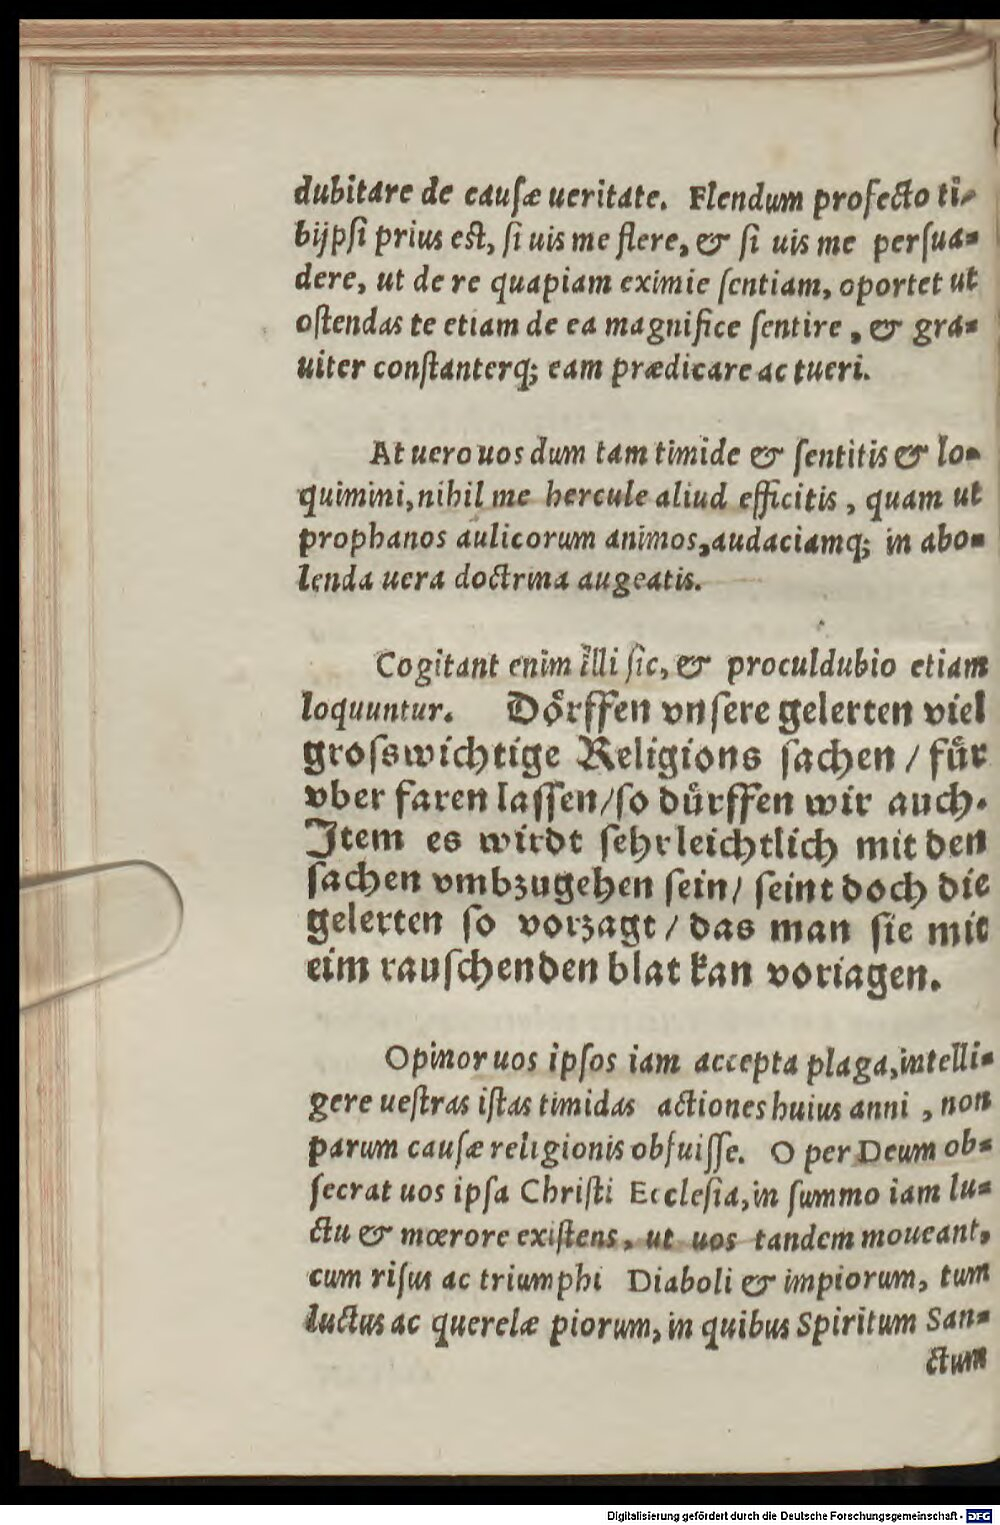 dubitare de cauſæ ueritate. Flendum profecto ti-
bijpſi prius eſt, ſi uis me flere, & ſi uis me perſua-
dere, ut de re quapiam eximie ſentiam, oportet ut
oſtendas te etiam de ea magnifice ſentire, & gra-
uiter conſtanterq; eam prædicare ac tueri.
At uero uos dum tam timide & ſentitis & lo-
quimini, nihil me hercule aliud efficitis, quam ut
prophanos aulicorum animos, audaciamq; in abo-
lenda uera doctrina augeatis.
Cogitant enim illi ſic, & proculdubio etiam
loquuntur. Doͤrffen vnſere gelerten viel
groſswichtige Religions ſachen / fuͤr
vber faren laſſen/ſo duͤrffen wir auch.
Item es wirdt ſehr leichtlich mit den
ſachen vmbzugehen ſein/ ſeint doch die
gelerten ſo vorzagt / das man ſie mit
eim rauſchenden blat kan voriagen.
Opinor uos ipſos iam accepta plaga, intelli-
gere ueſtras iſtas timidas actiones huius anni, non
parum cauſæ religionis obfuiſſe. O per Deum ob-
ſecrat uos ipſa Chriſti Eccleſia, in ſummo iam lu-
ctu & mœrore exiſtens, ut uos tandem moueant,
cum riſus ac triumphi Diaboli & impiorum, tum
luctus ac querelæ piorum, in quibus Spiritum San-
ctum
Digitalisierung gefördert durch die Deutsche Forschungsgemeinschaft - DFG